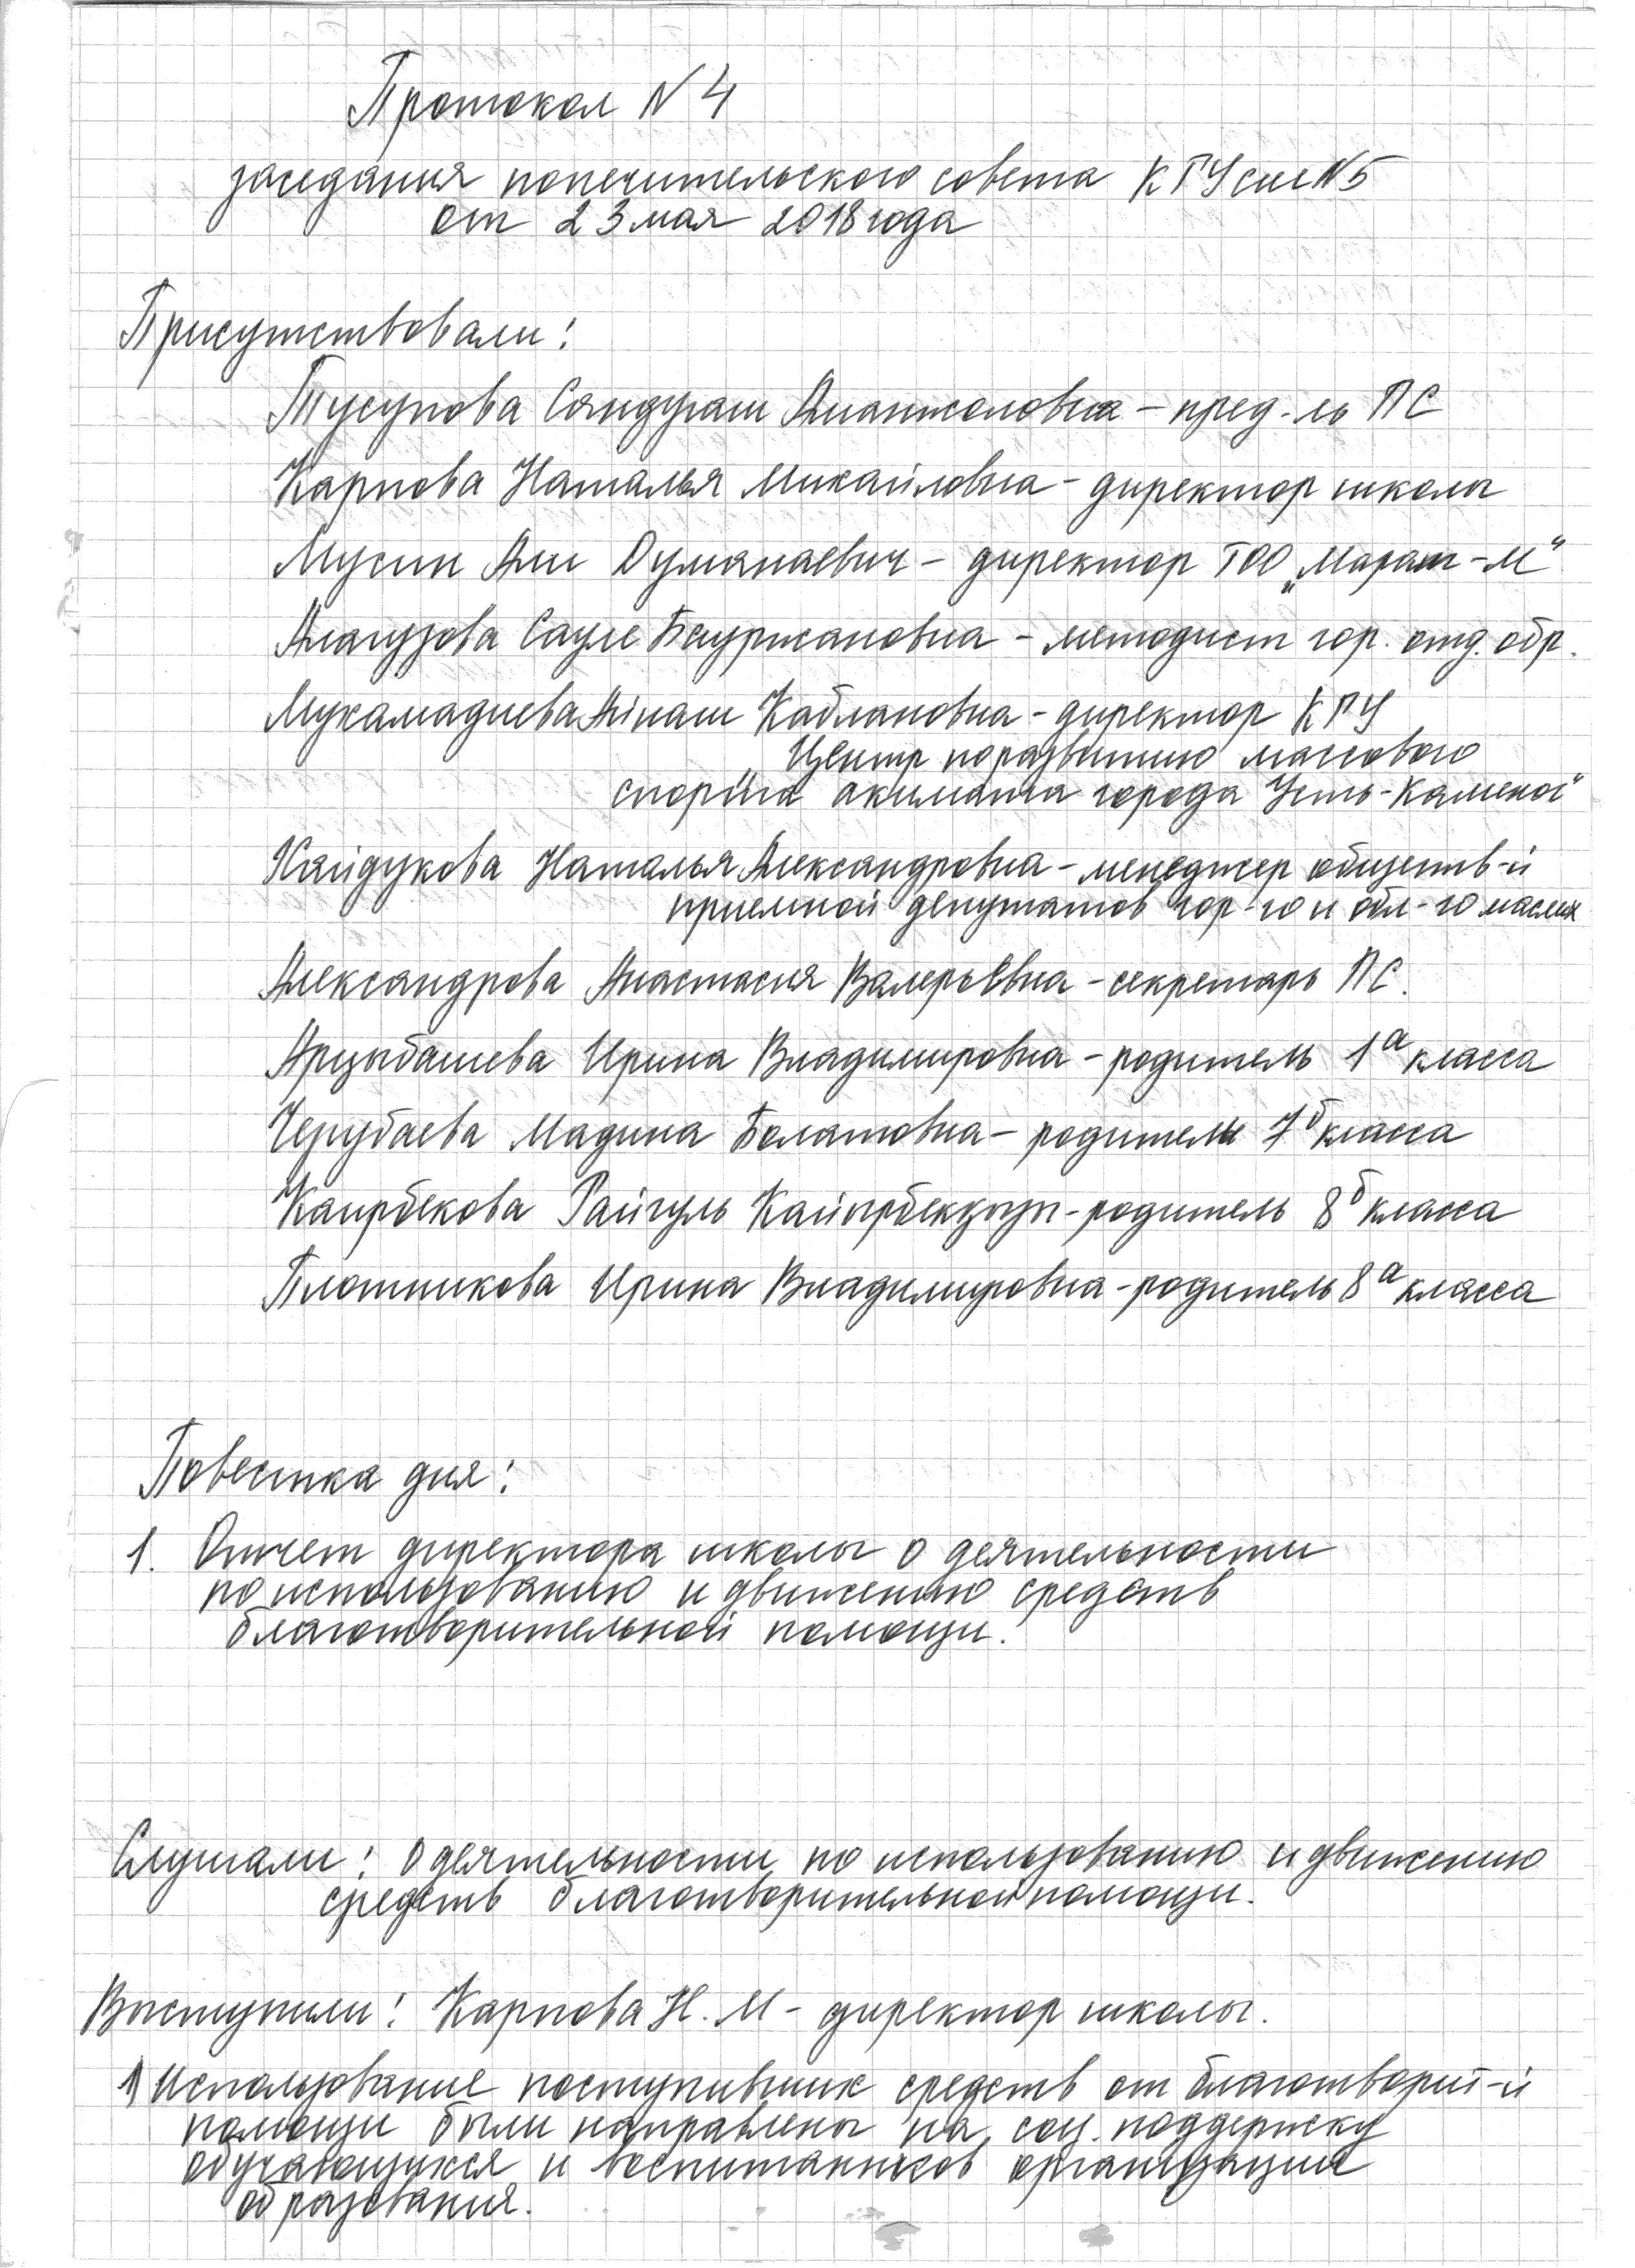 Протокол N 4
заседания попечительского совета КГУ сш N5
от 23 мая 2018 года
Присутствовали:
Тусупова Сандугаш Амантоловна - пред-ль ПС
Карпова Наталья Михайловна - директор школы
Мусин Али Думанаевич - директор ТОО „Марат-М“
Алагузова Сауле Бауржановна - методист гор. отд. обр.
Мухамадиева Айнаш Каблановна - директор КГУ
„Центр по развитию массового
спорта акимата города Усть-Каменог“
Кайдукова Наталья Александровна - менеджер обществ-й
приемной депутатов гор-го и обл-го маслих
Александрова Анастасия Валерьевна - секретарь ПС.
Арзыбашева Ирина Владимировна - родитель 1а класса
Черубаева Мадина Болатовна - родитель 7б класса
Каирбекова Райгуль Кайырбекқызы - родитель 8б класса
Плотникова Ирина Владимировна - родитель 8а класса
Повестка дня:
1. Отчет директора школы о деятельности
по использованию и движению средств
благотворительной помощи.
Слушали: О деятельности по использованию и движению
средств благотворительной помощи.
Выступили: Карпова Н.М - директор школы.
1) Использование поступивших средств от благотворит-й
помощи были направлены на соц. поддержку
обучающихся и воспитанников организации
образования.